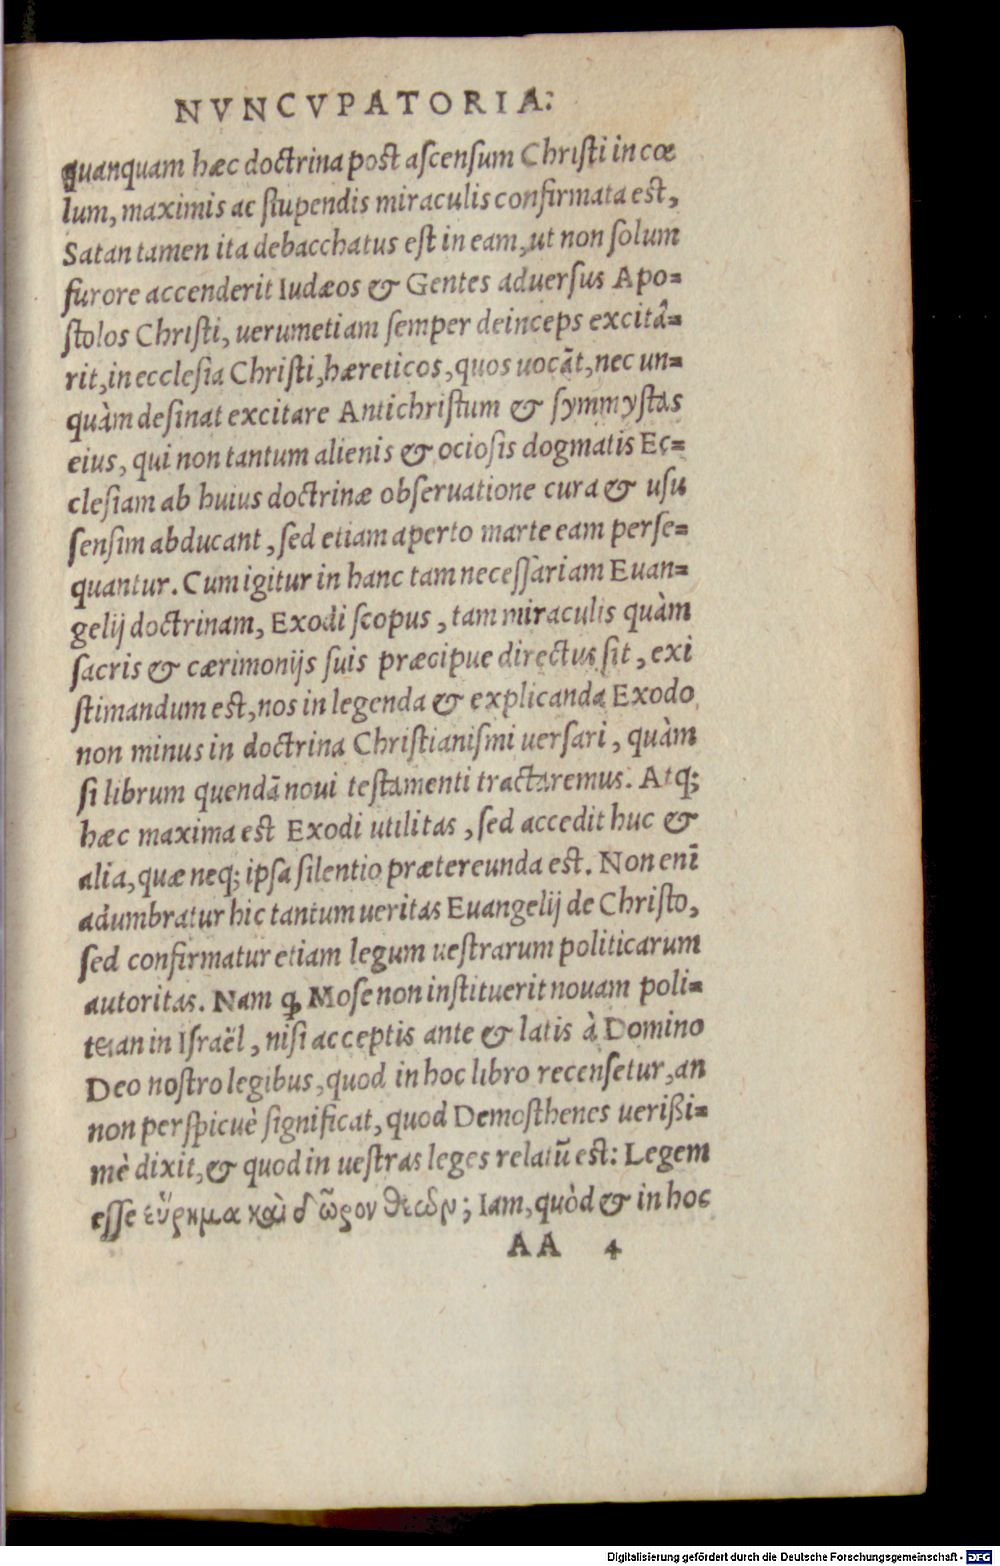 NVNCVPATORIA.
quanquam hæc doctrina post ascensum Christi in cœ
lum, maximis ac stupendis miraculis confirmata est,
Satan tamen ita debacchatus est in eam, ut non solum
furore accenderit Iudæos & Gentes aduersus Apo=
stolos Christi, uerumetiam semper deinceps excitâ=
rit, in ecclesia Christi, hæreticos, quos uocāt, nec un=
quàm desinat excitare Antichristum & symmystas
eius, qui non tantum alienis & ociosis dogmatis Ec=
clesiam ab huius doctrinæ obseruatione cura & usu
sensim abducant, sed etiam aperto marte eam perse=
quantur. Cum igitur in hanc tam necessariam Euan=
gelij doctrinam, Exodi scopus, tam miraculis quàm
sacris & cærimonijs suis præcipue directus sit, exi
stimandum est, nos in legenda & explicanda Exodo
non minus in doctrina Christianismi uersari, quàm
si librum quendā noui testamenti tractaremus. Atq;
hæc maxima est Exodi utilitas, sed accedit huc &
alia, quæ neq; ipsa silentio prætereunda est. Non enī
adumbratur hic tantum ueritas Euangelij de Christo,
sed confirmatur etiam legum uestrarum politicarum
autoritas. Nam ꝙ Mose non instituerit nouam poli=
teian in Israël, nisi acceptis ante & latis à Domino
Deo nostro legibus, quod in hoc libro recensetur, an
non perspicuè significat, quod Demosthenes uerißi=
mè dixit, & quod in uestras leges relatū est: Legem
esse εὕρημα καὶ δῶρον θεῶν; Iam, quòd & in hoc
AA 4
Digitalisierung gefördert durch die Deutsche Forschungsgemeinschaft - DFG